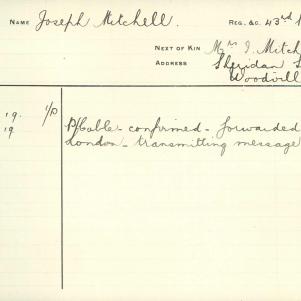 NAME Joseph Mitchell. REG. &C. 43rd
NEXT OF KIN Mrs J. Mitch
ADDRESS Sheridan S
Woodvill
19. 1/P P/Cable - confirmed - forwarded
19 London - transmitting message